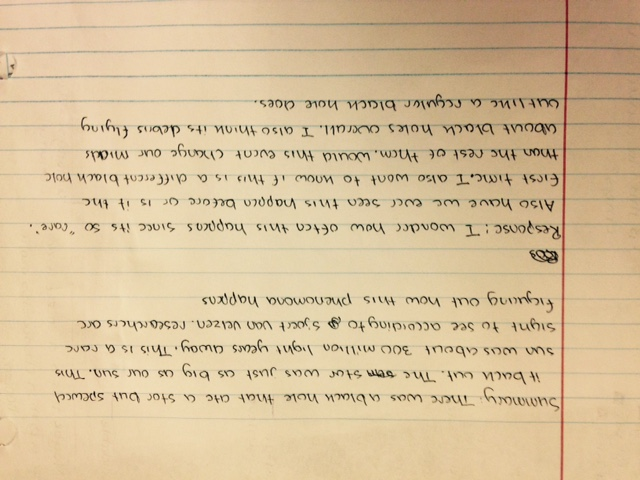 Summary: There was a black hole that ate a star but spewed
it back out. The star was just as big as our sun. This
sun was about 300 million light years away. This is a rare
sight to see according to Sjoert van Velzen. researchers are
figuing out how this phenomona happens
Response: I wonder how often this happens since its so "rare".
Also have we ever seen this happen before or is it the
first time. I also want to know if this is a different black hole
than the rest of them. Would this event change our minds
about black holes overall. I also think its debris flying
out like a regular black hole does.